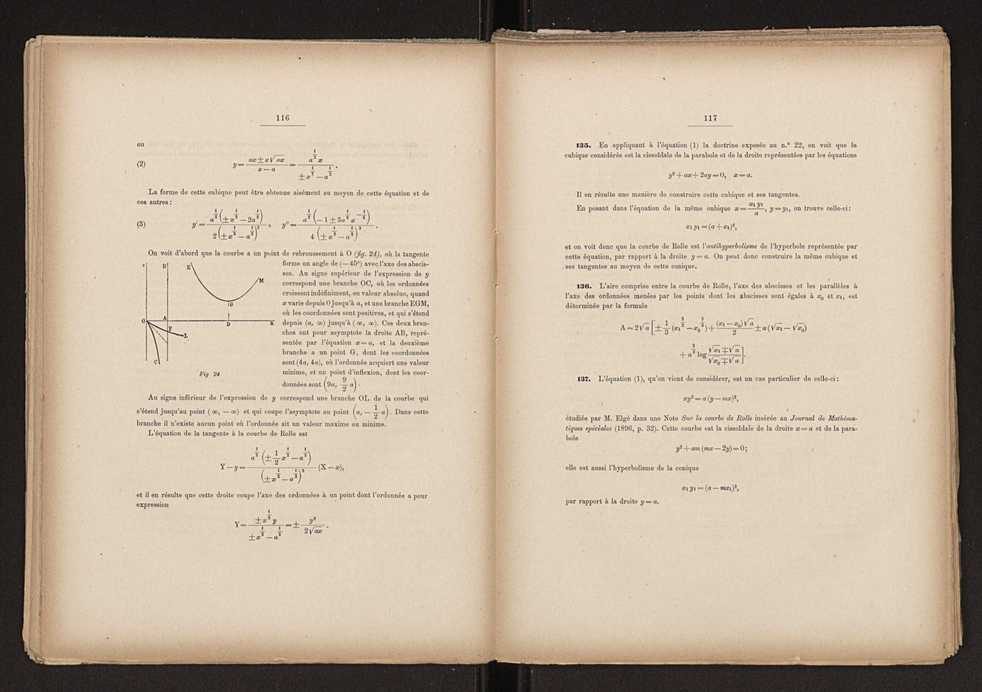 116
ou
(2) y = (ax ± x√ax)/(x — a) = a^{1/2} x/(± x^{1/2} — a^{1/2}).
La forme de cette cubique peut être obtenue aisément au moyen de cette équation et de
ces autres:
(3) y' = a^{1/2}(± x^{1/2} — 2a^{1/2})/2(± x^{1/2} — a^{1/2})², y'' = a^{1/2}(— 1 ± 3a^{1/2} x^{—1/2})/4(± x^{1/2} — a^{1/2})³.
On voit d'abord que la courbe a un point de rebroussement à O (fig. 24), où la tangente
forme un angle de (— 45°) avec l'axe des abscis-
ses. Au signe supérieur de l'expression de y
correspond une branche OC, où les ordonnées
croissent indéfiniment, en valeur absolue, quand
x varie depuis 0 jusqu'à a, et une branche EGM,
où les coordonnées sont positives, et qui s'étend
depuis (a, ∞) jusqu'à (∞, ∞). Ces deux bran-
ches ont pour asymptote la droite AB, repré-
sentée par l'équation x = a, et la deuxième
branche a un point G, dont les coordonnées
sont (4a, 4a), où l'ordonnée acquiert une valeur
minime, et un point d'inflexion, dont les coor-
données sont (9a, 9/2 a).
B
E
M
G
O
A
F
D
X
L
C
Fig 24
Au signe inférieur de l'expression de y correspond une branche OL de la courbe qui
s'étend jusqu'au point (∞, — ∞) et qui coupe l'asymptote au point (a, — 1/2 a). Dans cette
branche il n'existe aucun point où l'ordonnée ait un valeur maxime ou minime.
L'équation de la tangente à la courbe de Rolle est
Y — y = a^{1/2}(± 1/2 x^{1/2} — a^{1/2})/(± x^{1/2} — a^{1/2})² (X — x),
et il en résulte que cette droite coupe l'axe des ordonnées à un point dont l'ordonnée a pour
expression
Y = ± x^{1/2} y/(± x^{1/2} — a^{1/2}) = ± y²/2√ax.
117
135. En appliquant à l'équation (1) la doctrine exposée au n.º 22, on voit que la
cubique considérée est la cissoïdale de la parabole et de la droite représentées par les équations
y² + ax + 2ay = 0, x = a.
Il en résulte une manière de construire cette cubique et ses tangentes.
En posant dans l'équation de la même cubique x = x₁y₁/a, y = y₁, on trouve celle-ci:
x₁y₁ = (a + x₁)²,
et on voit donc que la courbe de Rolle est l'antihyperbolisme de l'hyperbole représentée par
cette équation, par rapport à la droite y = a. On peut donc construire la même cubique et
ses tangentes au moyen de cette conique.
136. L'aire comprise entre la courbe de Rolle, l'axe des abscisses et les parallèles à
l'axe des ordonnées menées par les points dont les abscisses sont égales à x₀ et x₁, est
déterminée par la formule
A = 2√a [± 1/3 (x₁^{3/2} — x₀^{3/2}) + (x₁ — x₀)√a/2 ± a(√x₁ — √x₀)
+ a^{3/2} log (√x₁ ∓ √a)/(√x₀ ∓ √a)].
137. L'équation (1), qu'on vient de considérer, est un cas particulier de celle-ci:
xy² = a(y — mx)²,
étudiée par M. Elgé dans une Note Sur la courbe de Rolle insérée au Journal de Mathéma-
tiques spéciales (1896, p. 32). Cette courbe est la cissoïdale de la droite x = a et de la para-
bole
y² + am(mx — 2y) = 0;
elle est aussi l'hyperbolisme de la conique
x₁y₁ = (a — mx₁)²,
par rapport à la droite y = a.